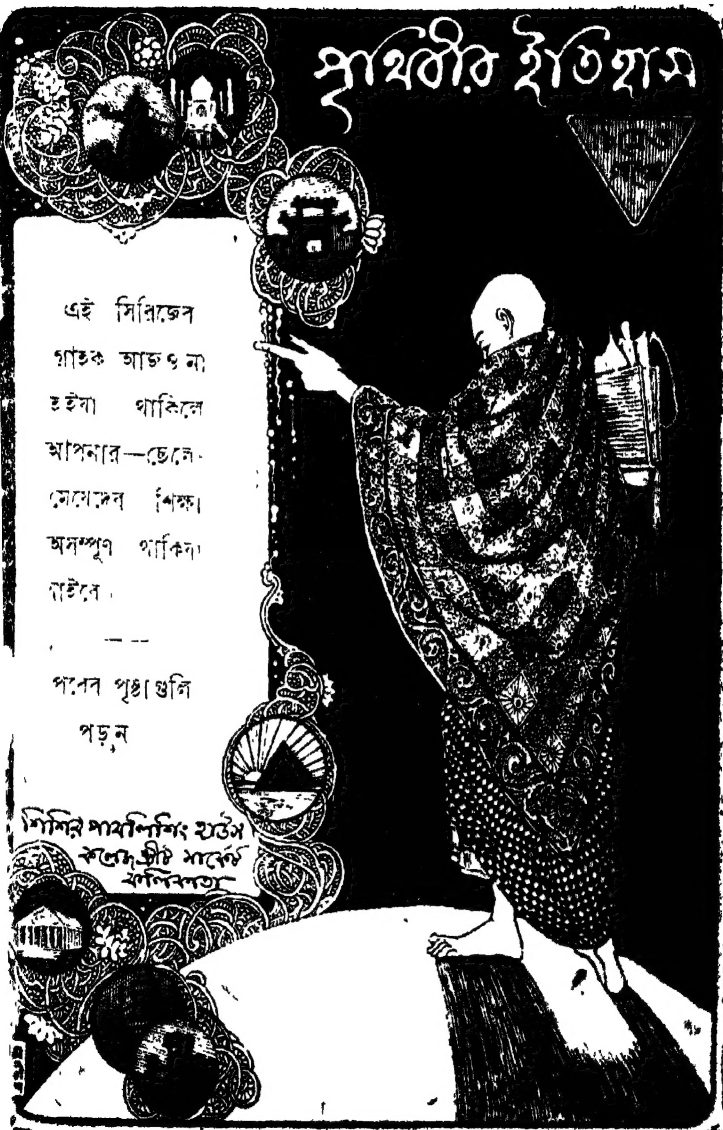 পৃথিবীর ইতিহাস
এই সিরিজের
গ্রাহক আজও না
হইয়া থাকিলে
আপনার—ছেলে-
মেয়েদের শিক্ষা
অসম্পূর্ণ থাকিয়া
যাইবে।
পরের পৃষ্ঠাগুলি
পড়ুন
শিশির পাবলিশিং হাউস
কলেজ স্ট্রীট মার্কেট
কলিকাতা